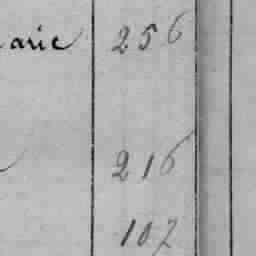 arie 256
216
107